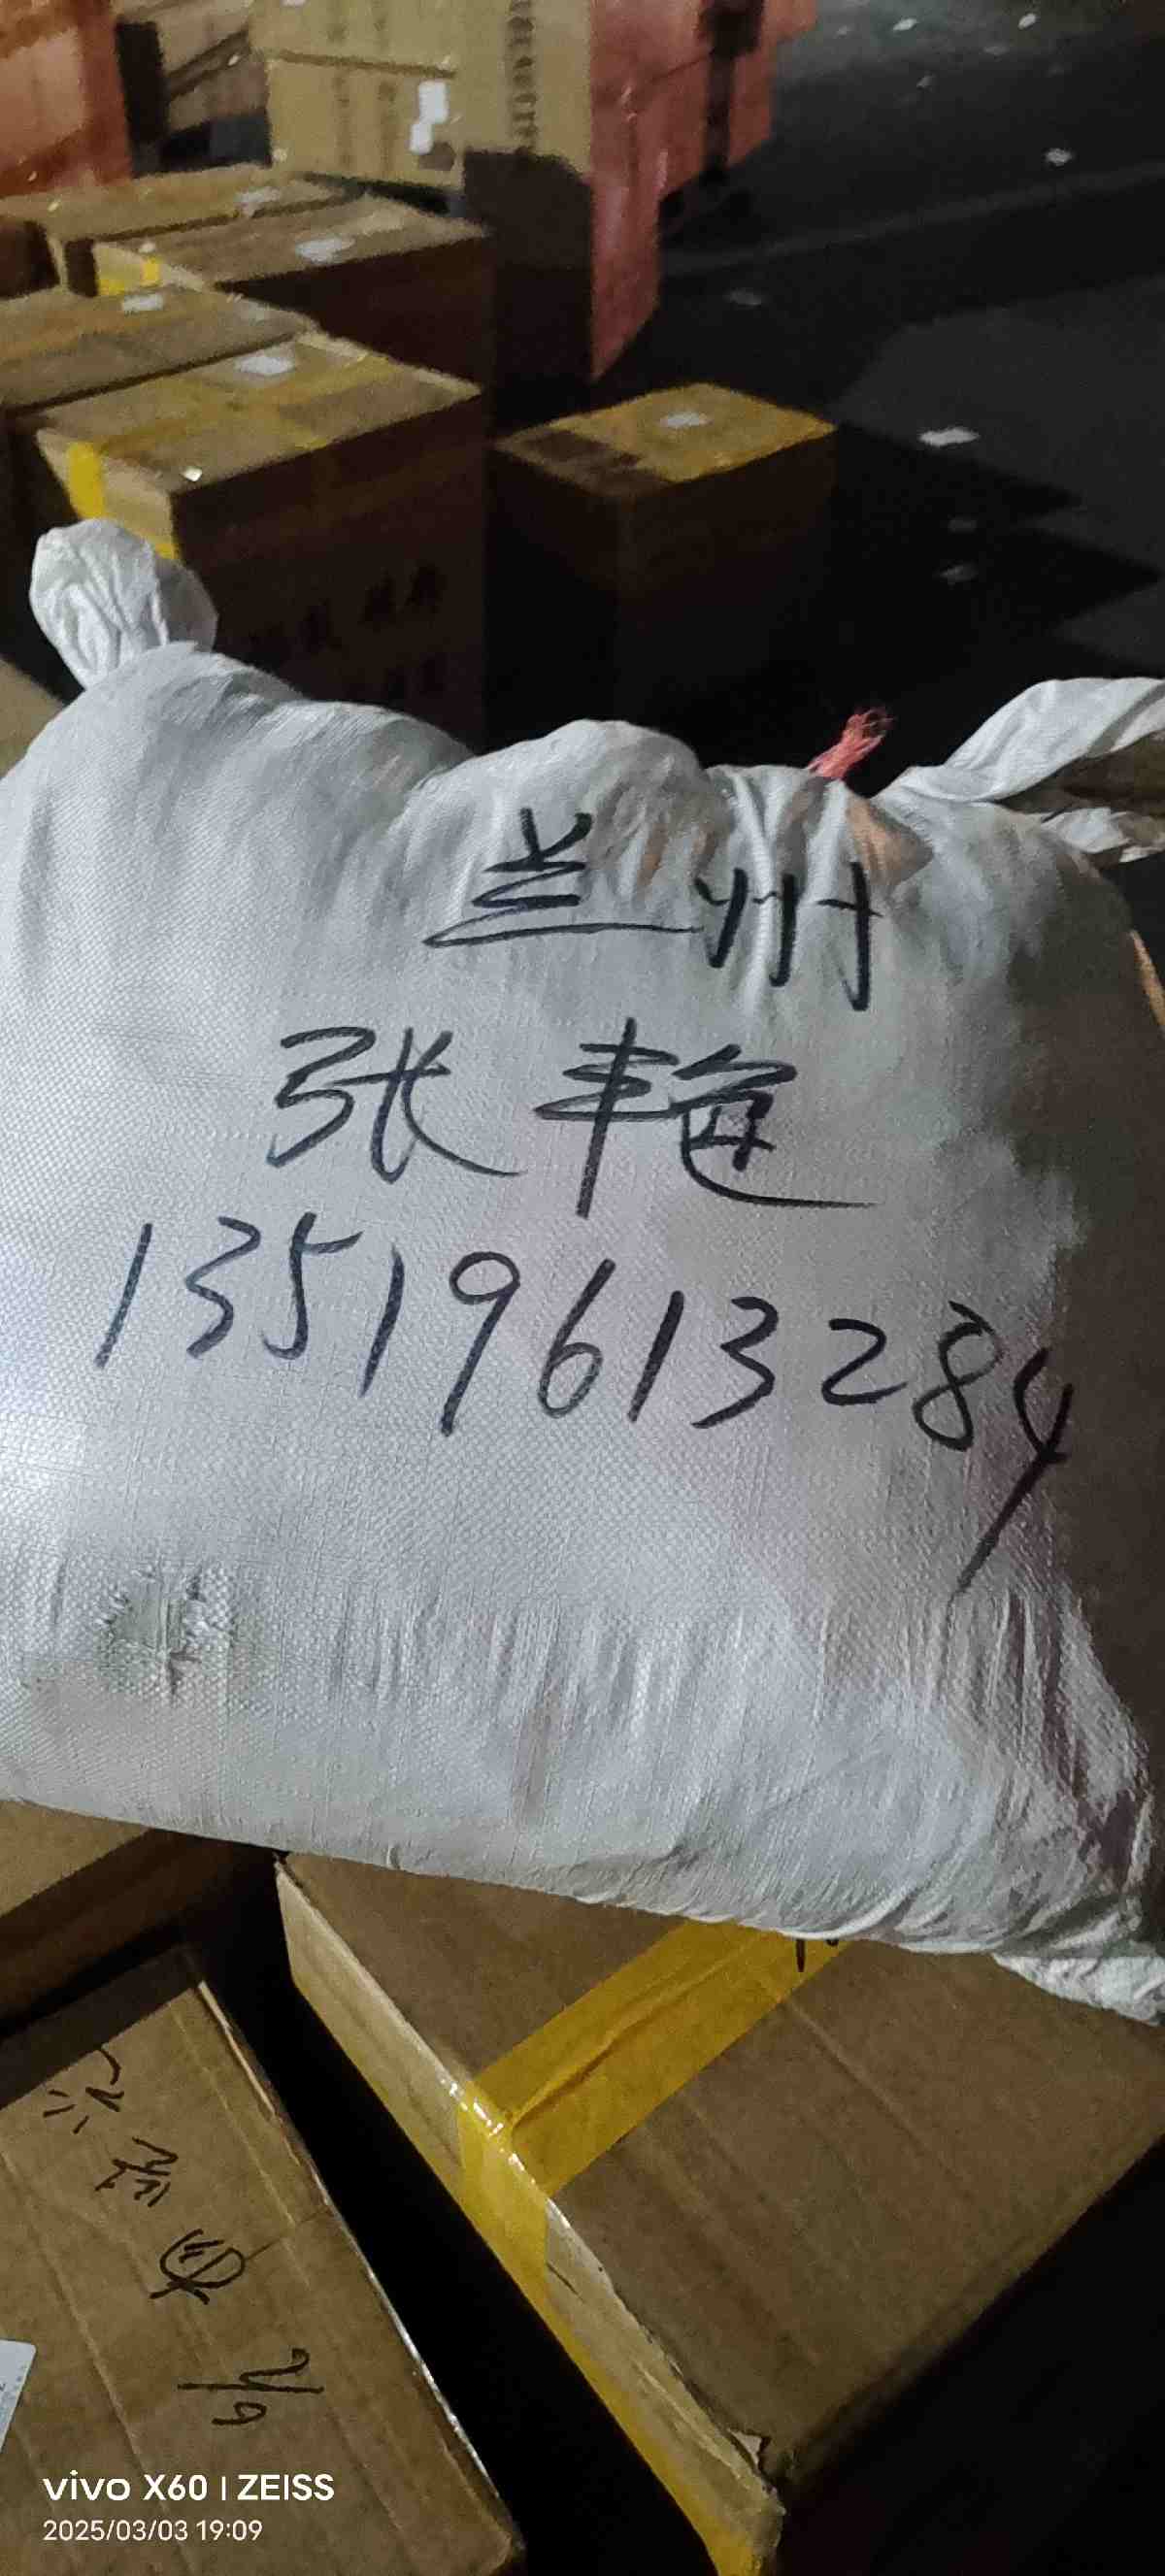 兰州
张艳
13519613284
vivo X60 | ZEISS
2025/03/03 19:09